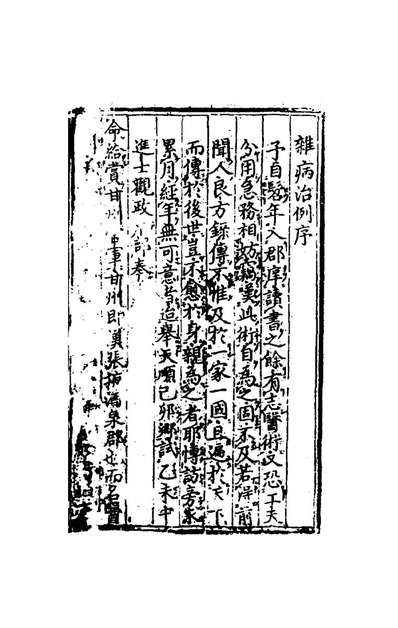 雜病治例序
予自髫年入郡庠讀書之餘有志醫術又恐工夫
分用急務相妨嘆此術自為之固不及若得前
聞人良方錄傳不惟及於一家一國且遍於天下
而傳於後世豈不愈於身親為之者耶博訪旁求
累月經年無可意者造舉天順己卯鄉試乙未中
進士觀政 部奉
命給賞甘州 軍甘州即 張掖酒泉郡也而名醫